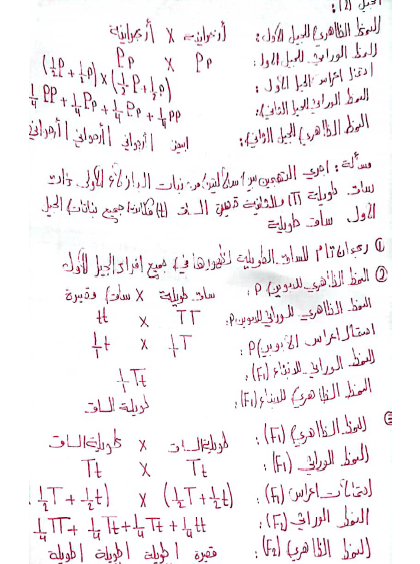 الجيل (2):
النمط الظاهري للجيل الأول: أرجوانية X أرجوانية
النمط الوراثي للجيل الأول: Pp X Pp
اعراس الجيل الأول: (½P + ½p) X (½P + ½p)
النمط الوراثي للجيل الثاني: ¼ PP + ¼ Pp + ¼ Pp + ¼ pp
النمط الظاهري للجيل الثاني: ابيض أرجواني أرجواني أرجواني
مسألة: اجري التهجين بين سلالتين من نبات البازلاء الأولى ذات
ساق طويلة (T) والثانية قصيرة الساق (t) فكانت جميع نباتات الجيل
الأول ساق طويلة
① رجحان تام للساق الطويلة لظهورها في جميع افراد الجيل الأول
② النمط الظاهري للابوين P: ساق طويلة X ساق قصيرة
النمط الوراثي للابوين P: TT X tt
اعراس الأبوين P: 1/1 T X 1/1 t
النمط الوراثي للابناء (F1): 1/1 Tt
النمط الظاهري للابناء (F1): طويلة الساق
③ النمط الظاهري (F1): طويلة الساق X طويلة الساق
النمط الوراثي (F1): Tt X Tt
اعراس (F1): (½T + ½t) X (½T + ½t)
النمط الوراثي (F2): ¼TT + ¼Tt + ¼Tt + ¼tt
النمط الظاهري (F2): طويلة طويلة طويلة قصيرة